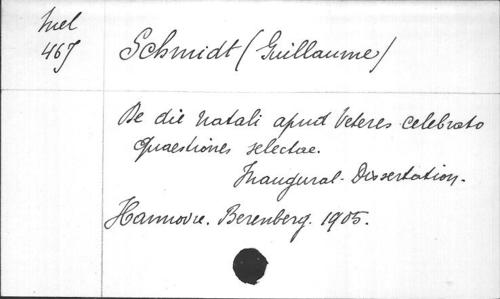 Mel
467
Schmidt (Guillaume)
De die natali apud Veteres celebrato
quaestiones selectae.
Inaugural-Dissertation.
Hannovre. Berenberg. 1905.